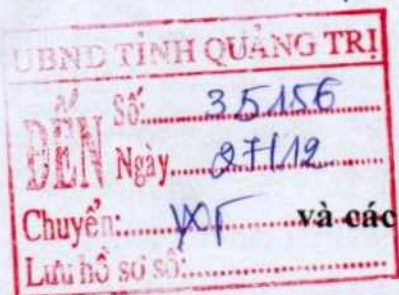 UBND TỈNH QUẢNG TRỊ
ĐẾN
Số:.......35156.......
Ngày.......27/12.......
Chuyển:.............. và các
Lưu hồ sơ số:..............